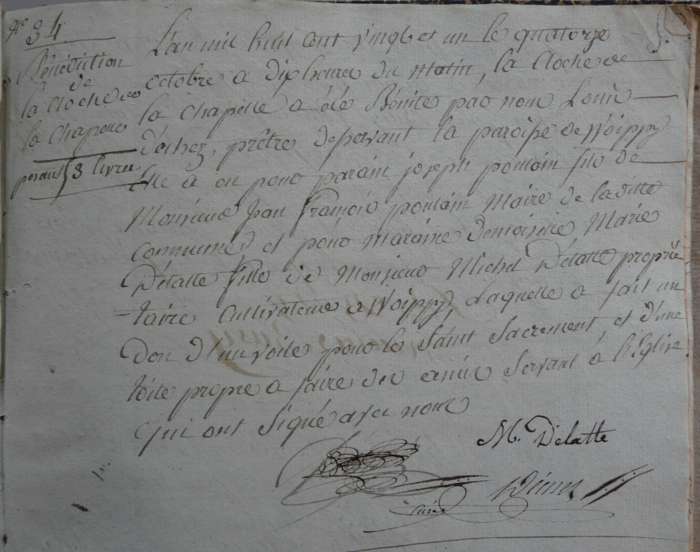 N° 34
Bénédiction
de
la Cloche de
la Chapelle
pesant 53 livres
L'an mil huit cent vingt et un le quatorze
octobre a dix heures du matin, la Cloche de
la chapelle a été Bénite par nous Louis
prêtre desservant la paroisse de Woippy
Elle a eu pour parain joseph poulain fils de
Monsieur Jean François poulain Maire de la ditte
Commune et pour Maraine demoiselle Marie
Délatte fille de Monsieur Michel Délatte proprié
taire Cultivateur a Woippy, Laquelle a fait un
Don d'un voile pour le Saint Sacrement et d'une
toile propre a faire des Servant à l'Eglise
Qui ont Signé avec nous
M. Délatte